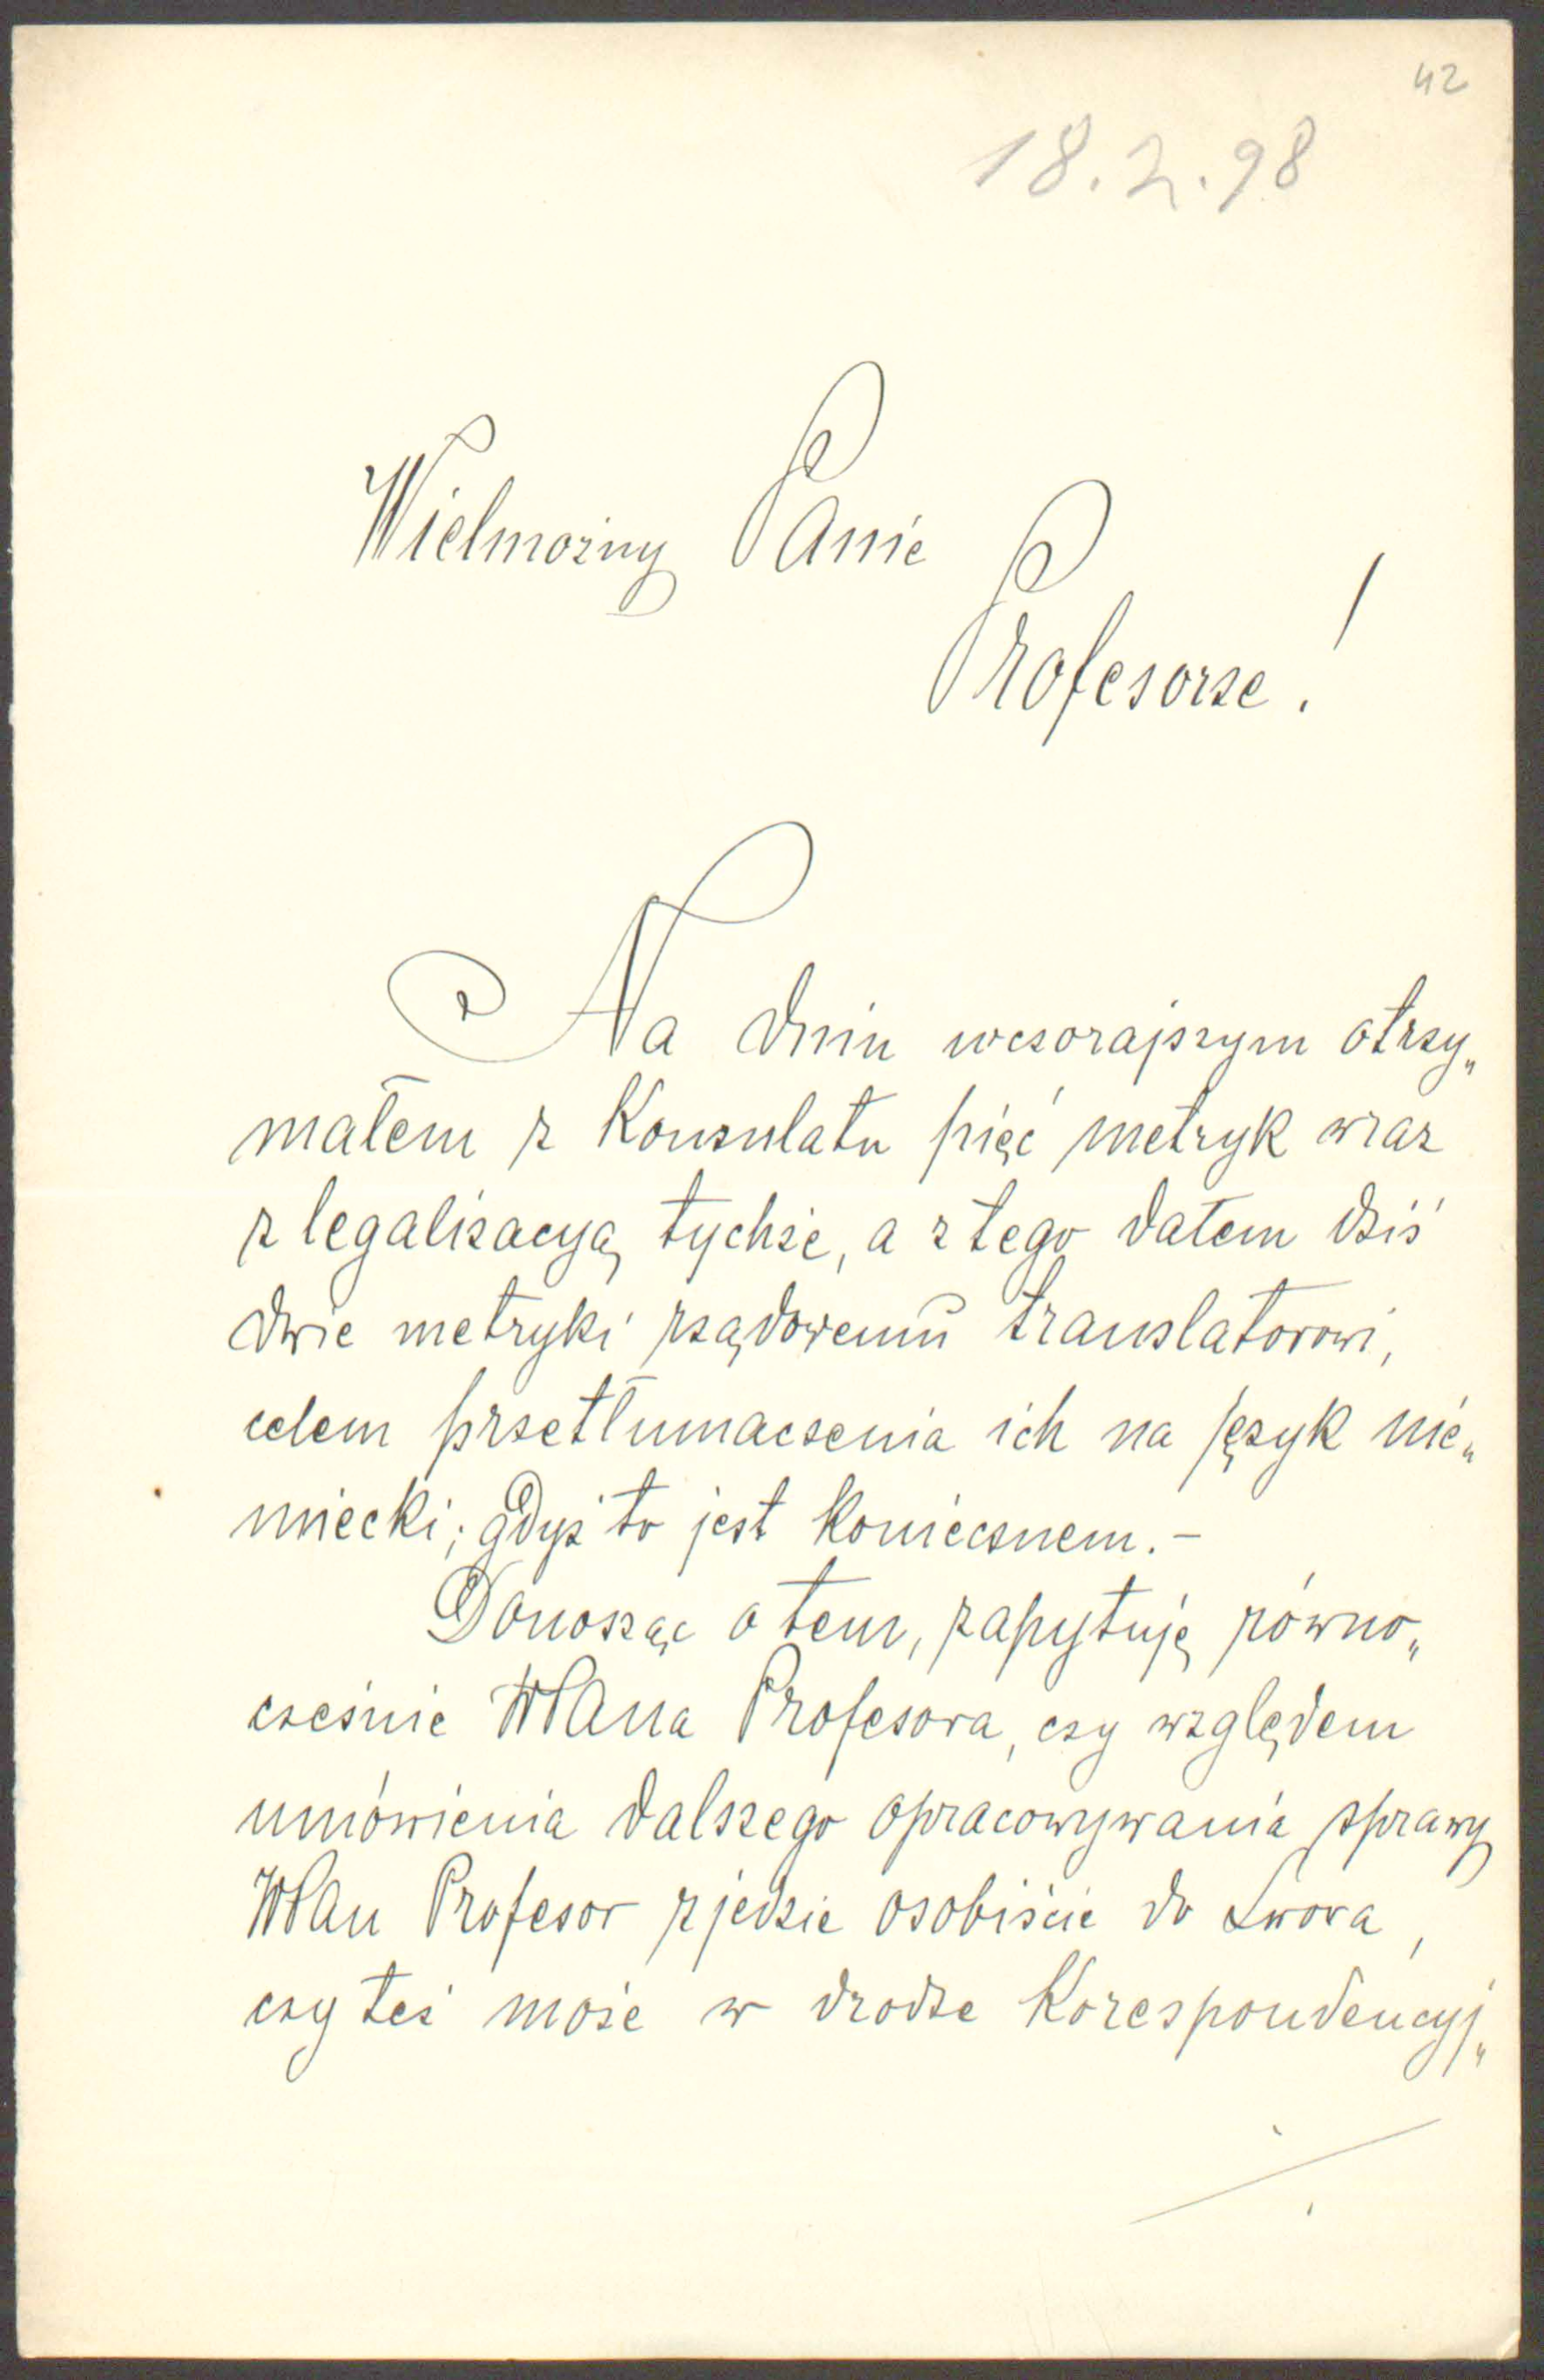 42
18.2.98
Wielmożny Panie
Profesorze!
Na dniu wczorajszym otrzy„
małem z Konsulatu pięć metryk wraz
z legalizacyą tychże, a z tego dałem dziś
dwie metryki rządowemu translatorowi,
celem przetłumaczenia ich na język nie„
miecki; gdyż to jest koniecznem.-
Donosząc o tem, zapytuję równo„
cześnie WPana Profesora, czy względem
umówienia dalszego opracowywania sprawy
WPan Profesor zjedzie osobiście do Lwowa,
czy też może w drodze Korespondencyj„
./.